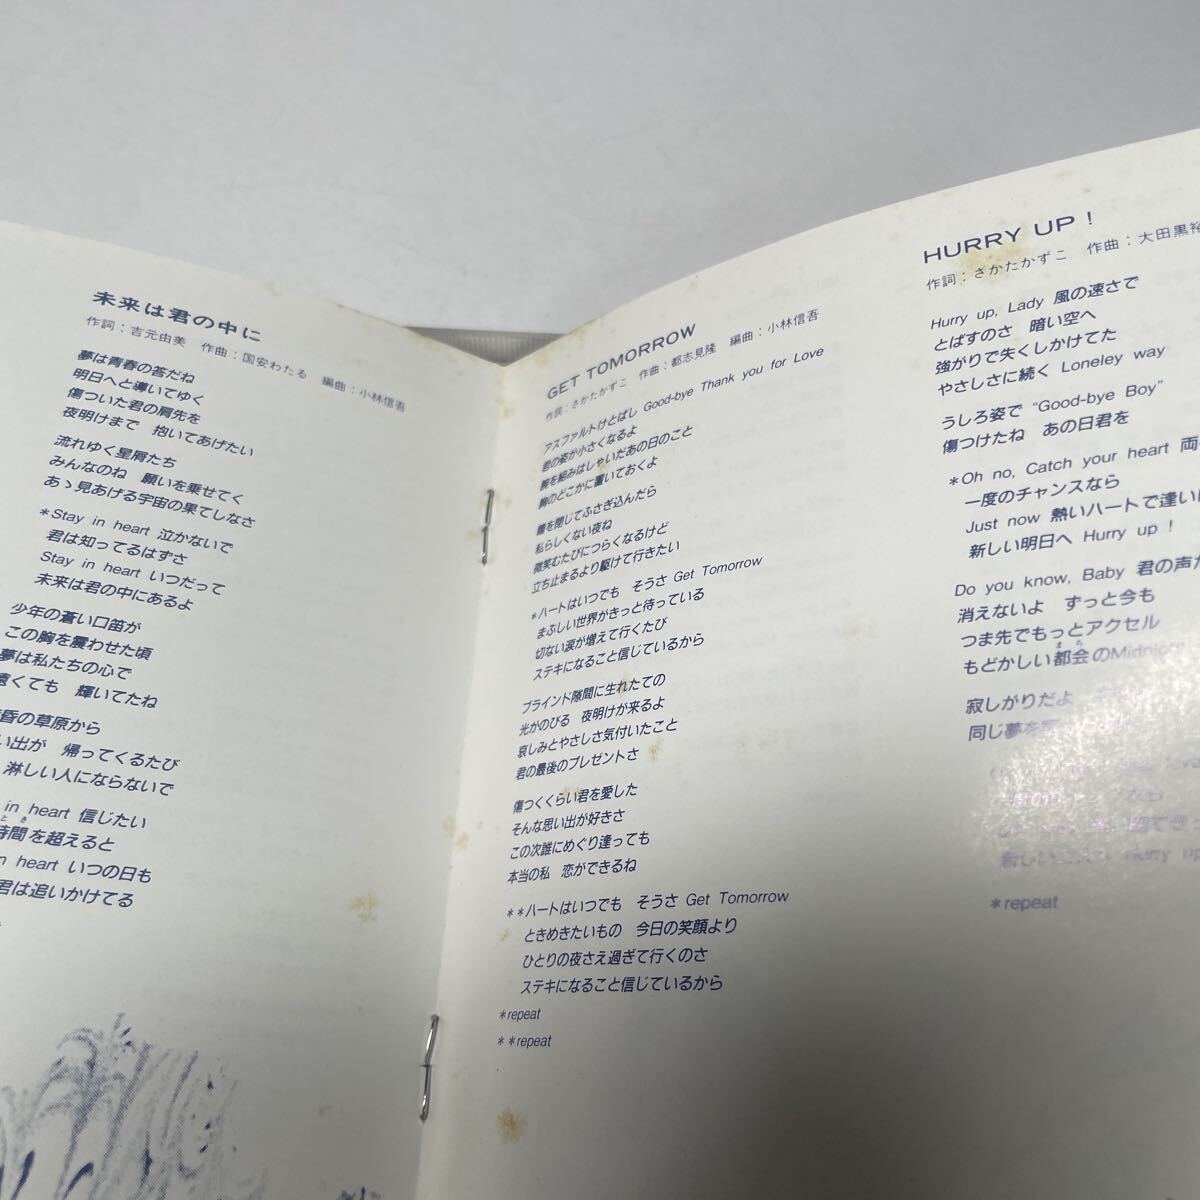 未来は君の中に
作詞：吉元由美　作曲：国安わたる　編曲：小林信吾
夢は青春の答だね
明日へと導いてゆく
傷ついた君の肩先を
夜明けまで　抱いてあげたい
流れゆく星屑たち
みんなのね　願いを乗せてく
あゝ見あげる宇宙の果てしなさ
*Stay in heart 泣かないで
君は知ってるはずさ
Stay in heart いつだって
未来は君の中にあるよ
少年の蒼い口笛が
この胸を震わせた頃
夢は私たちの心で
遠くても　輝いてたね
昏の草原から
い出が　帰ってくるたび
淋しい人にならないで
in heart 信じたい
時間を超えると
とき
n heart いつの日も
君は追いかけてる
GET TOMORROW
作詞：さかたかずこ　作曲：都志見隆　編曲：小林信吾
アスファルトけとばし Good-bye Thank you for Love
君の姿が小さくなるよ
腕を組みはしゃいだあの日のこと
胸のどこかに置いておくよ
瞳を閉じてふさぎ込んだら
私らしくない夜ね
微笑むたびにつらくなるけど
立ち止まるより駆けて行きたい
*ハートはいつでも　そうさ Get Tomorrow
まぶしい世界がきっと待っている
切ない涙が増えて行くたび
ステキになること信じているから
ブラインド隙間に生れたての
光がのびる　夜明けが来るよ
哀しみとやさしさ気付いたこと
君の最後のプレゼントさ
傷つくくらい君を愛した
そんな思い出が好きさ
この次誰にめぐり逢っても
本当の私　恋ができるね
**ハートはいつでも　そうさ Get Tomorrow
ときめきたいもの　今日の笑顔より
ひとりの夜さえ過ぎて行くのさ
ステキになること信じているから
*repeat
**repeat
HURRY UP！
作詞：さかたかずこ　作曲：大田黒裕
Hurry up, Lady 風の速さで
とばすのさ　暗い空へ
強がりで失くしかけてた
やさしさに続く Loneley way
うしろ姿で “Good-bye Boy”
傷つけたね　あの日君を
*Oh no, Catch your heart 両
一度のチャンスなら
Just now 熱いハートで逢いに
新しい明日へ Hurry up！
Do you know, Baby 君の声だ
消えないよ　ずっと今も
つま先でもっとアクセル
もどかしい都会のMidnight
まち
寂しがりだよ
同じ夢を
Hurry up
*repeat